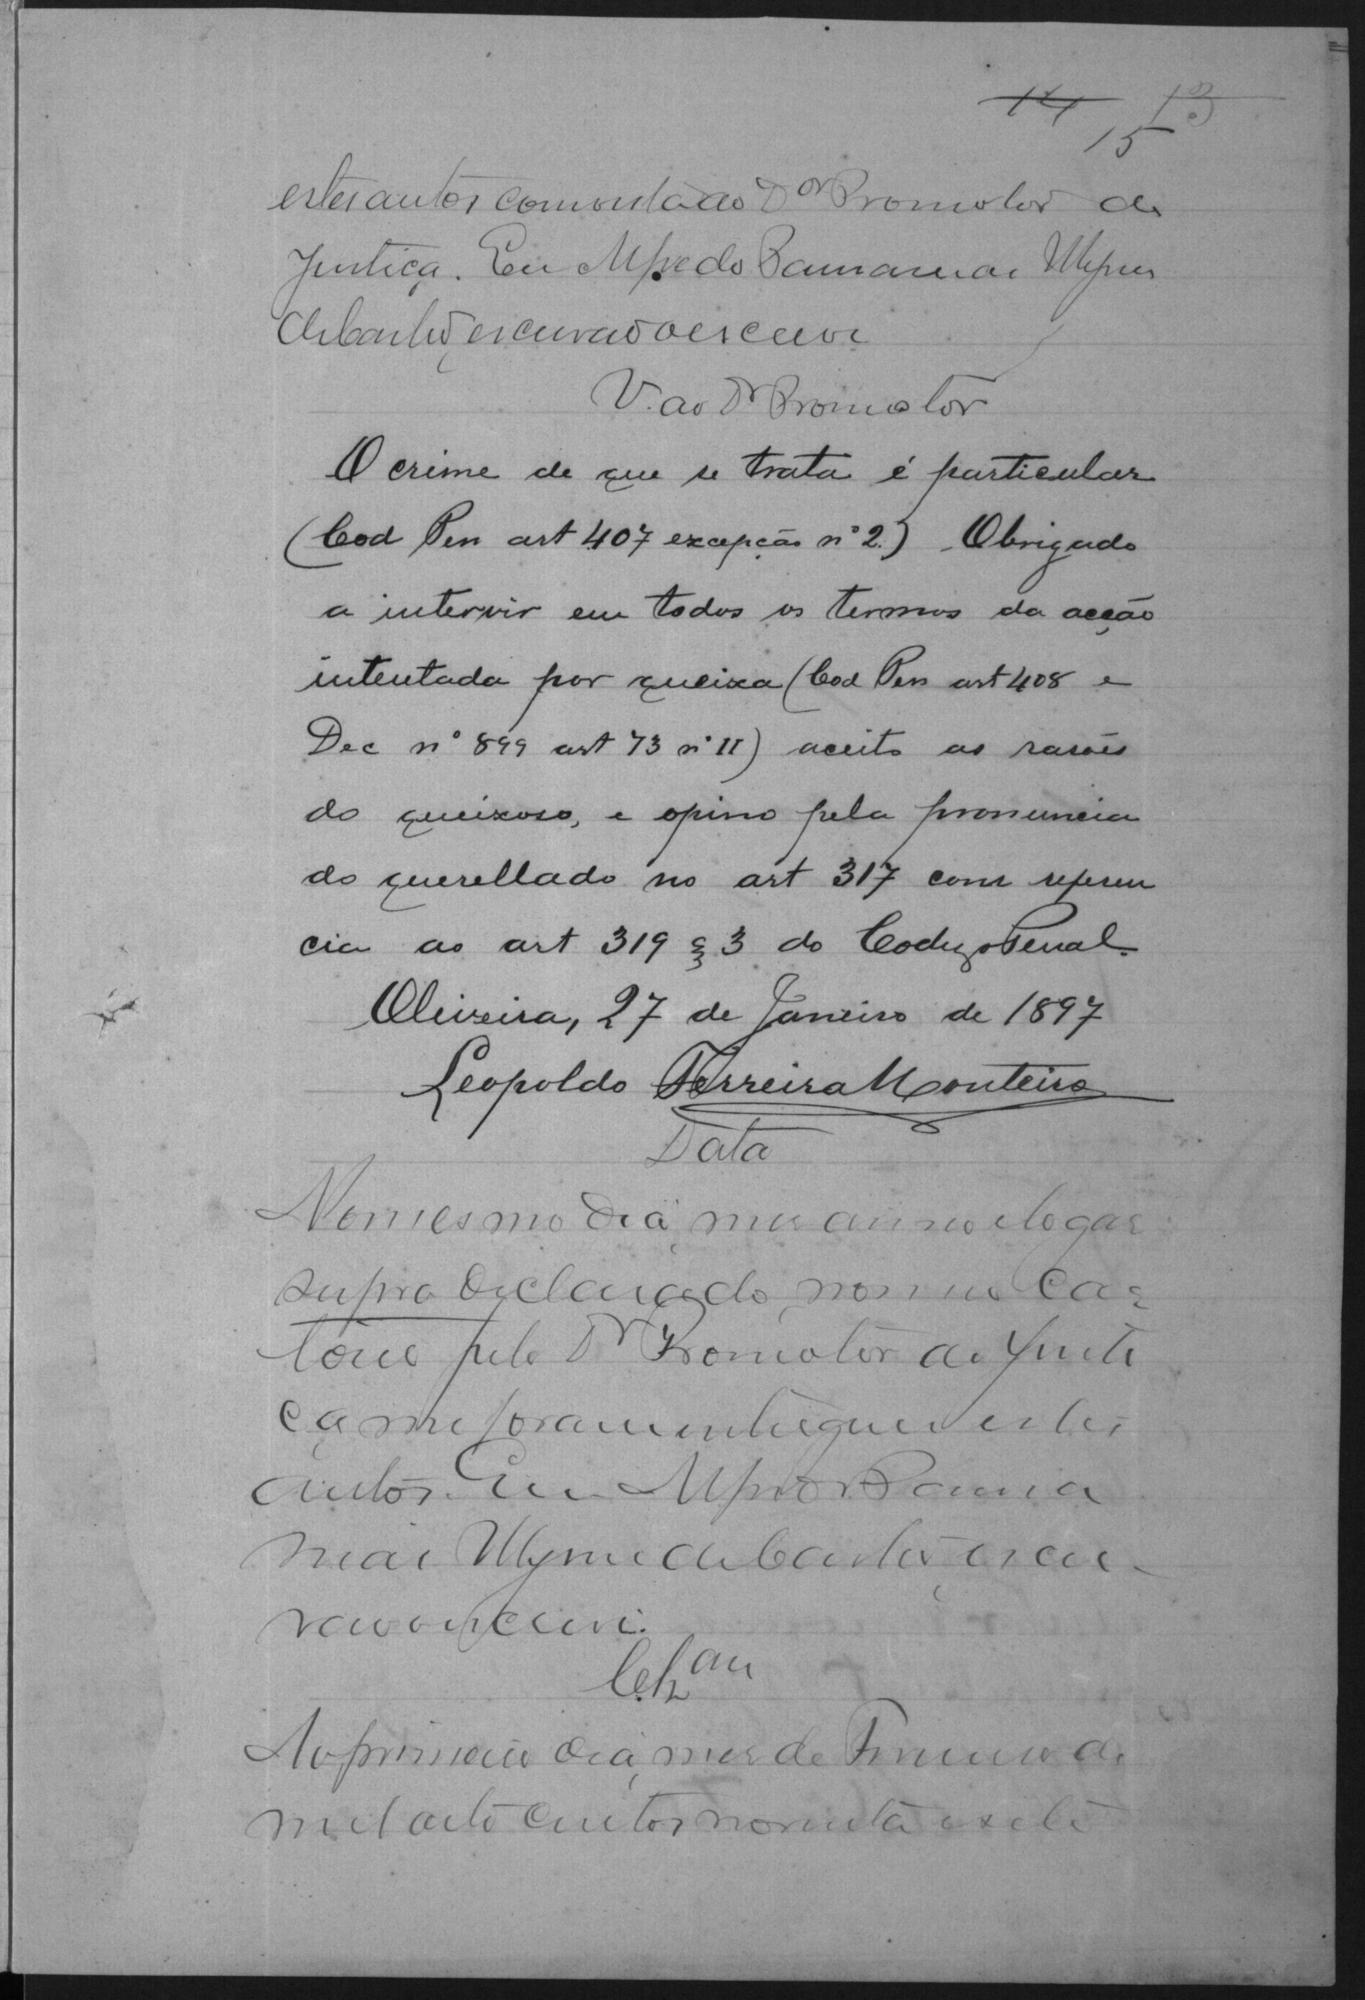 14 13
15
estes autos com vista ao Dor Promotor de
Justiça. Eu Alfredo
de Castro, escrivão o escrevi
V. ao Dr Promotor
O crime de que se trata é particular
(Cod Pen art 407 excepção nº 2.) Obrigado
a intervir em todos os termos da acção
intentada por queixa (Cod Pen art 408 e
Dec nº 899 art 73 nº II) aceito as rasões
do queixoso, e opino pela pronuncia
do querellado no art 317 com referen
cia ao art 319 § 3 do Codigo Penal.
Oliveira, 27 de Janeiro de 1897
Leopoldo Ferreira Monteiro
Data
No mesmo dia, mes anno e logar
supra declarado, no meu car
torio pelo Dr Promotor de Justi
ça me foram entregues estes
autos. Eu
de Castro, escri
vão o escrevi.
Clzam
Ao primeiro dia, mes de Fevereiro de
mil oito centos noventa e sete